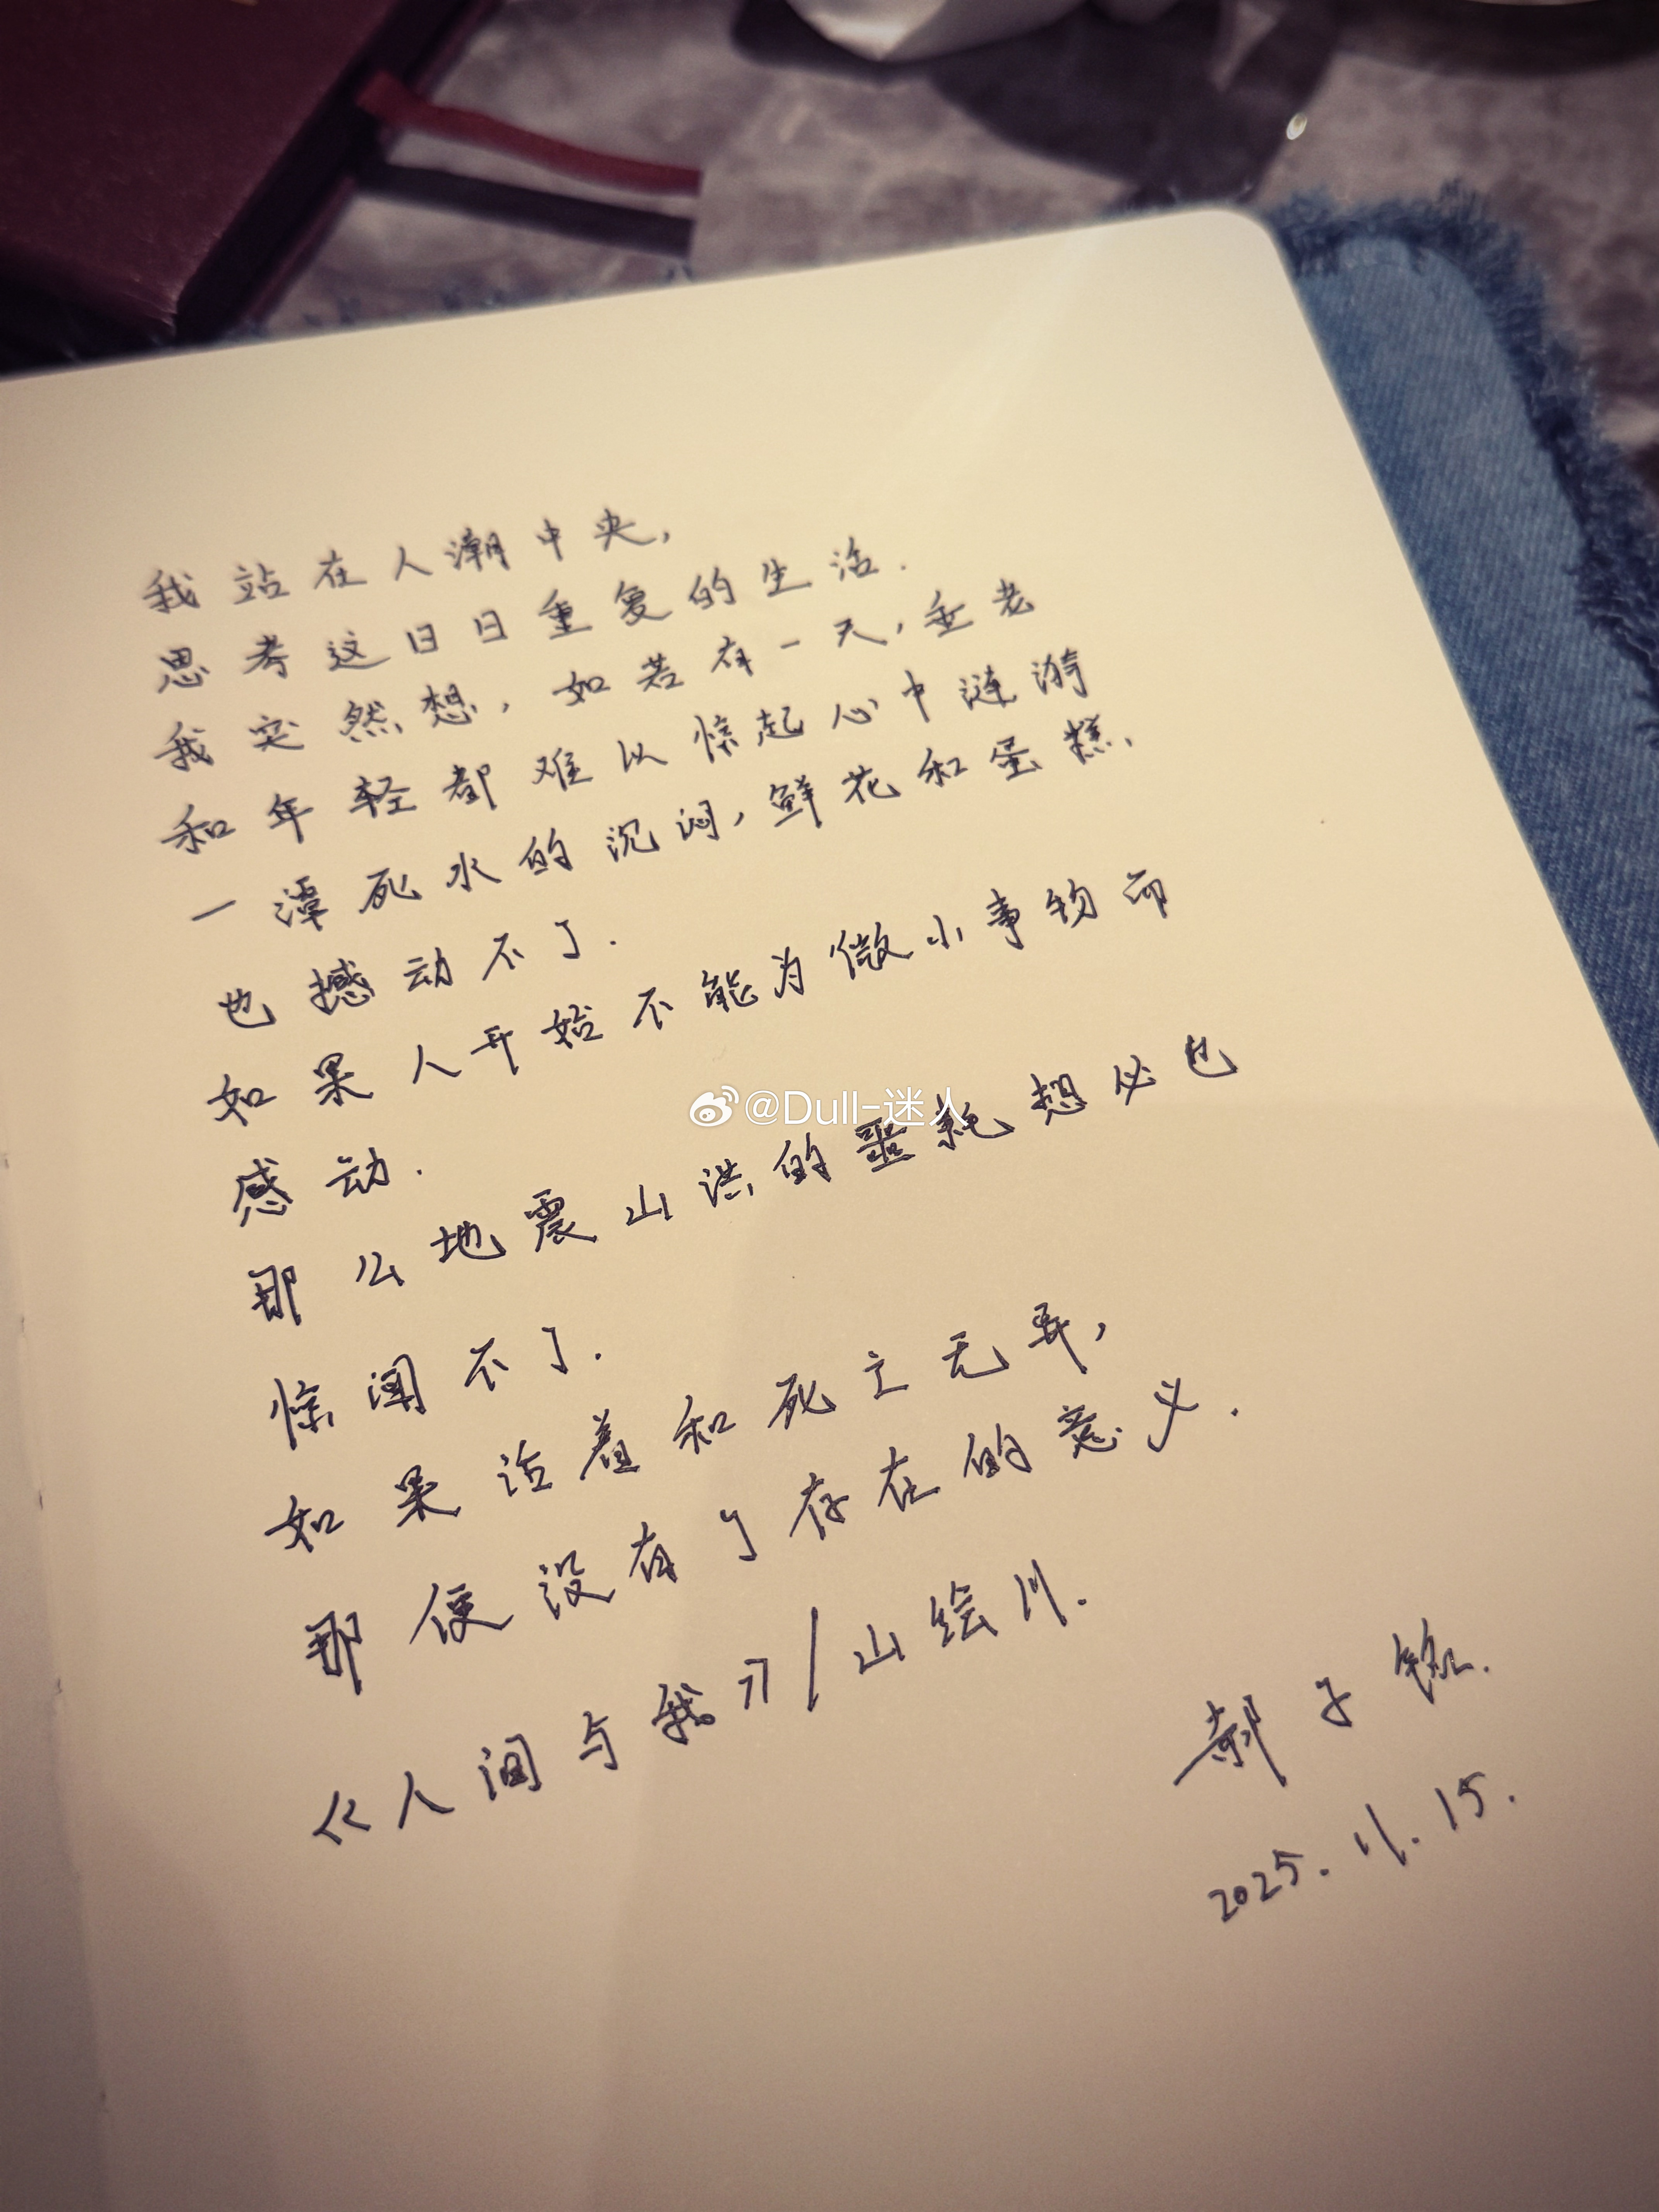 我站在人潮中央,
思考这日日重复的生活.
我突然想,如若有一天,垂老
和年轻都难以惊起心中涟漪
一潭死水的沉闷,鲜花和蛋糕、
也撼动不了.
如果人开始不能为微小事物而
感动.
@Dull-迷人
那么地震山洪的噩耗想必也
惊闻不了.
如果活着和死亡无异,
那便没有了存在的意义.
《人间与我》/山绘川.
郝子铭.
2025.11.15.